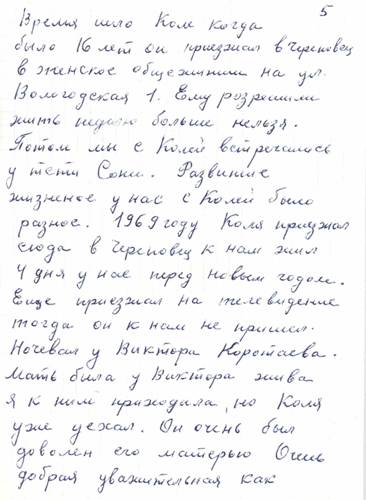 5
Время шло Коле когда
было 16 лет он приезжал в Череповец
в женское общежитие на ул.
Вологодская 1. Ему розрешили
жить неделю больше нельзя.
Потом мы с Колей встречались
у тёти Сони. Развитие
жизненое у нас с Колей было
разное. 1969 году Коля приезжал
сюда в Череповец к нам жил
4 дня у нас перед новым годом.
Еще приезжал на телевидение
тогда он к нам не пришел.
Ночевал у Виктора Коротаева.
Мать была у Виктора жива
я к ним приходила, но Коля
уже уехал. Он очень был
доволен его матерью Очень
добрая уважительная как